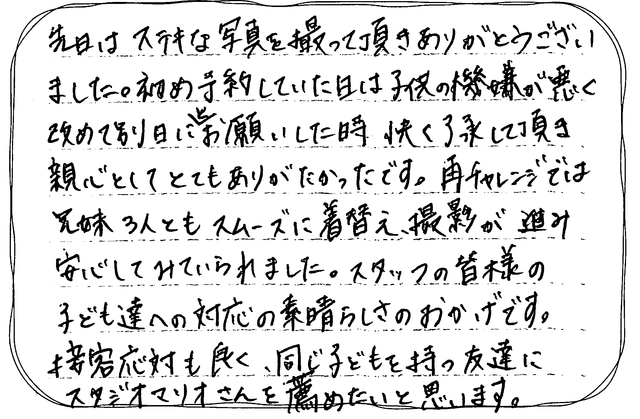 先日は ステキな 写真を 撮って頂きありがとうござい
ました。初め予約していた日は子供の機嫌が悪く
改めて別日にとお願いした時 快く了承して頂き
親心としてとてもありがたかったです。再チャレンジでは
兄妹3人ともスムーズに着替え、撮影が進み
安心してみていられました。スタッフの皆様の
子ども達への対応の素晴らしさのおかげです。
接客応対も良く、同じ子どもを持つ友達に
スタジオマリオさんを薦めたいと思います。